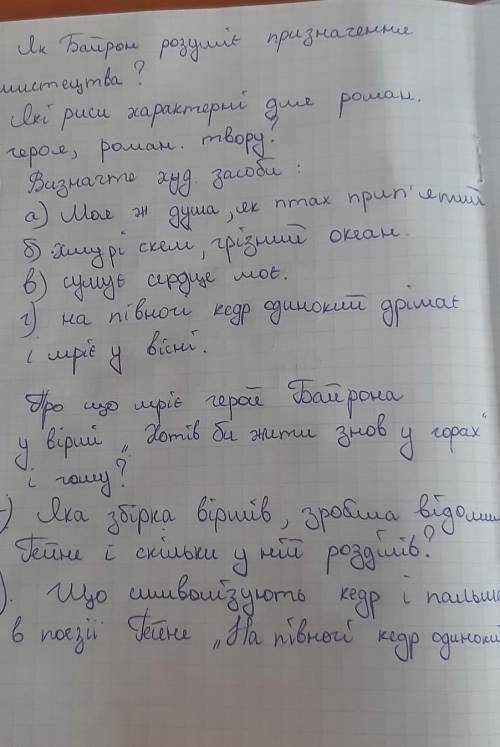 Як Байрон розуміє призначення
мистецтва?
Які риси характерні для роман.
героя, роман. твору?
Визначте худ. засоби:
а) Моя ж душа, як птах прип'ятий
б) хмурі скелі, грізний океан.
в) сумує сердце моє.
г) на півночі кедр одинокий дрімає
і мріє у вісні.
Про що мріє герой Байрона
у вірші „Хотів би жити знов у горах"
і чому?
) Яка збірка віршів, зробила відомим
Гейне і скільки у ній розділів?
). Що символізують кедр і пальма
в поезії Гейне „На півночі кедр одинокий